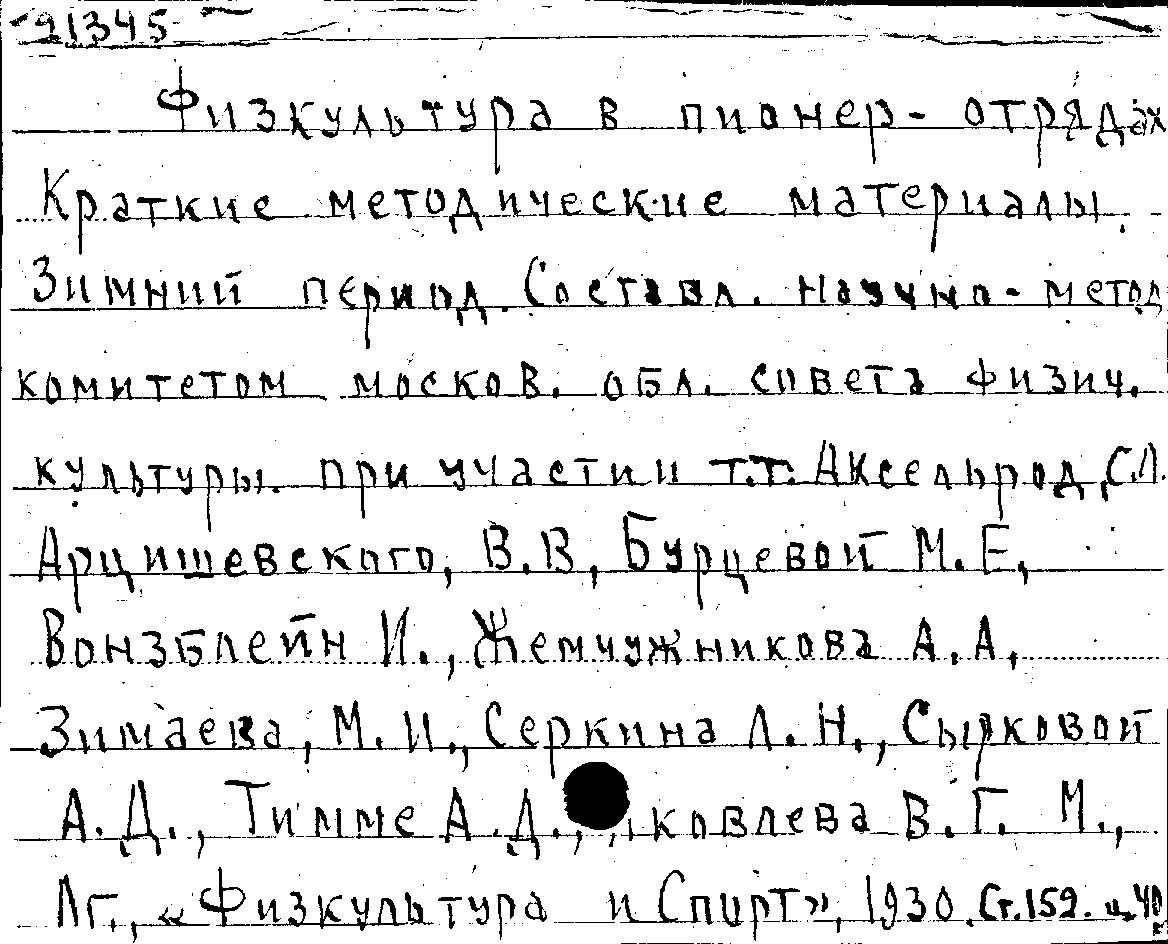 21345
Физкультура в пионер- отрядах
Краткие методические материалы.
Зимний период. Составл. научно- метод
комитетом москов. обл. совета физич.
культуры. при участии т.т. Аксельрод, С.Л.
Арцишевского, В.В, Бурцевой М.Е,
Вонзблейн И., Жемчужникова А.А,
Зимаева, М.И., Серкина Л.Н., Сырковой
А.Д., Тимме А.Д., Яковлева В.Г. М.,
Лг., «Физкультура и Спорт», 1930. Ст. 152. ц. 40